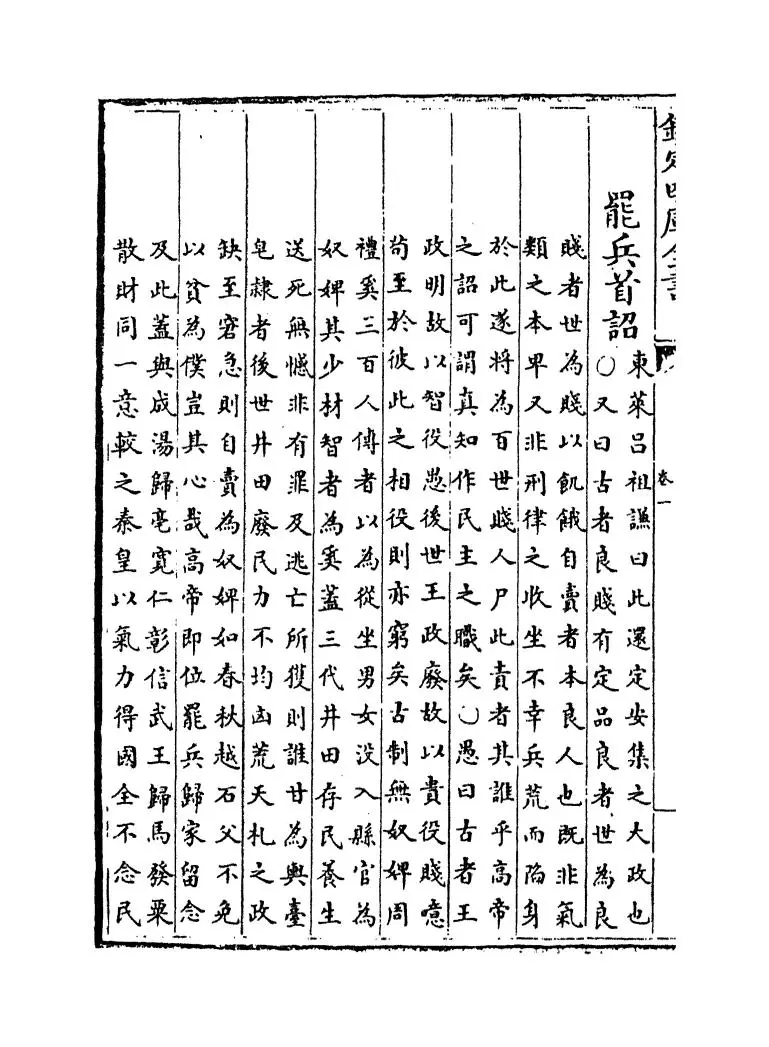 欽定四庫全書 卷一
罷兵首詔
東萊呂祖謙曰此還定安集之大政也
○又曰古者良賤有定品良者世為良
賤者世為賤以飢餓自賣者本良人也既非氣
類之本卑又非刑律之收坐不幸兵荒而陷身
於此遂將為百世賤人尸此責者其誰乎高帝
之詔可謂真知作民主之職矣○愚曰古者王
政明故以智役愚後世王政廢故以貴役賤噫
苟至於彼此之相役則亦窮矣古制無奴婢周
禮奚三百人傳者以為從坐男女没入縣官為
奴婢其少材智者為奚蓋三代井田存民養生
送死無憾非有罪及逃亡所獲則誰甘為輿臺
皂隷者後世井田廢民力不均凶荒夭札之政
缺至窘急則自賣為奴婢如春秋越石父不免
以貧為僕豈其心哉高帝即位罷兵歸家留念
及此蓋與成湯歸亳寛仁彰信武王歸馬發粟
散財同一意較之秦皇以氣力得國全不念民